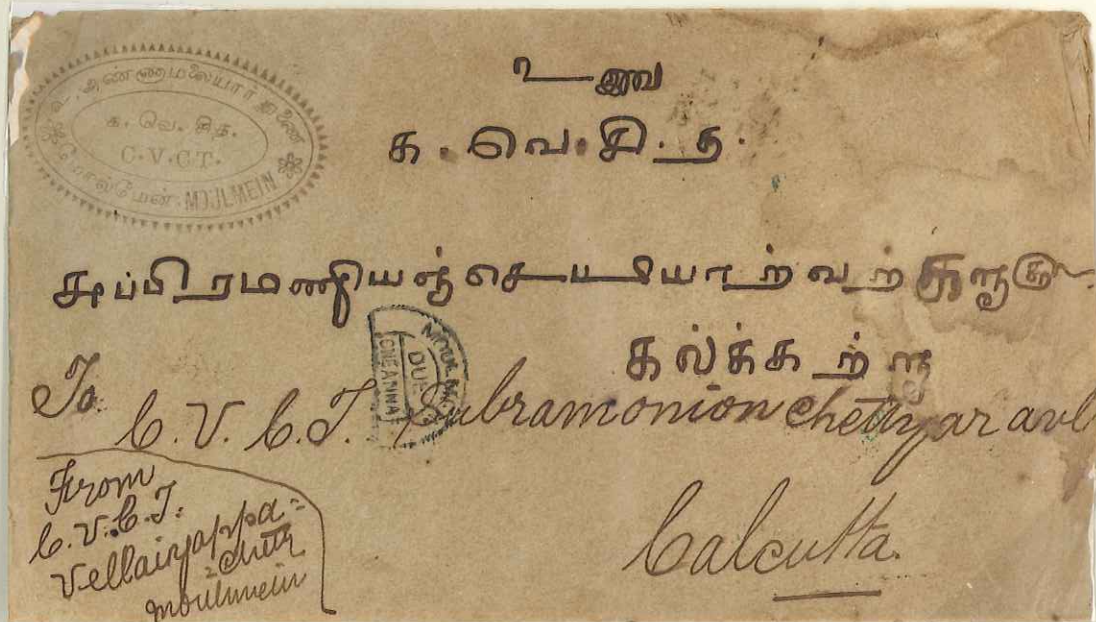 வ. அண்ணாமலையார் துணை
க. வெ. சித.
C.V.C.T.
மோல்மேன். MOULMEIN
உ
க. வெ. சி. த.
சுப்பிரமணியஞ் செட்டியாரவற்
கல்க்கற்று
MOULMEIN
DUE
ONE ANNA
To
C. V. C. T. Subramonion chettyar avl
Calcutta.
From
C. V. C. T.
Vellaiyappa=
=chetty
moulmein